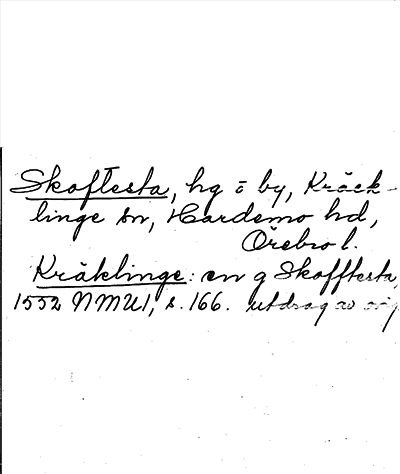 Skoftesta, hg o by, Kräck-
linge sn, Hardemo hd,
Örebro l.
Kräklinge: en g Skofftesta,
1552 NMU1, s. 166. utdrag av orig